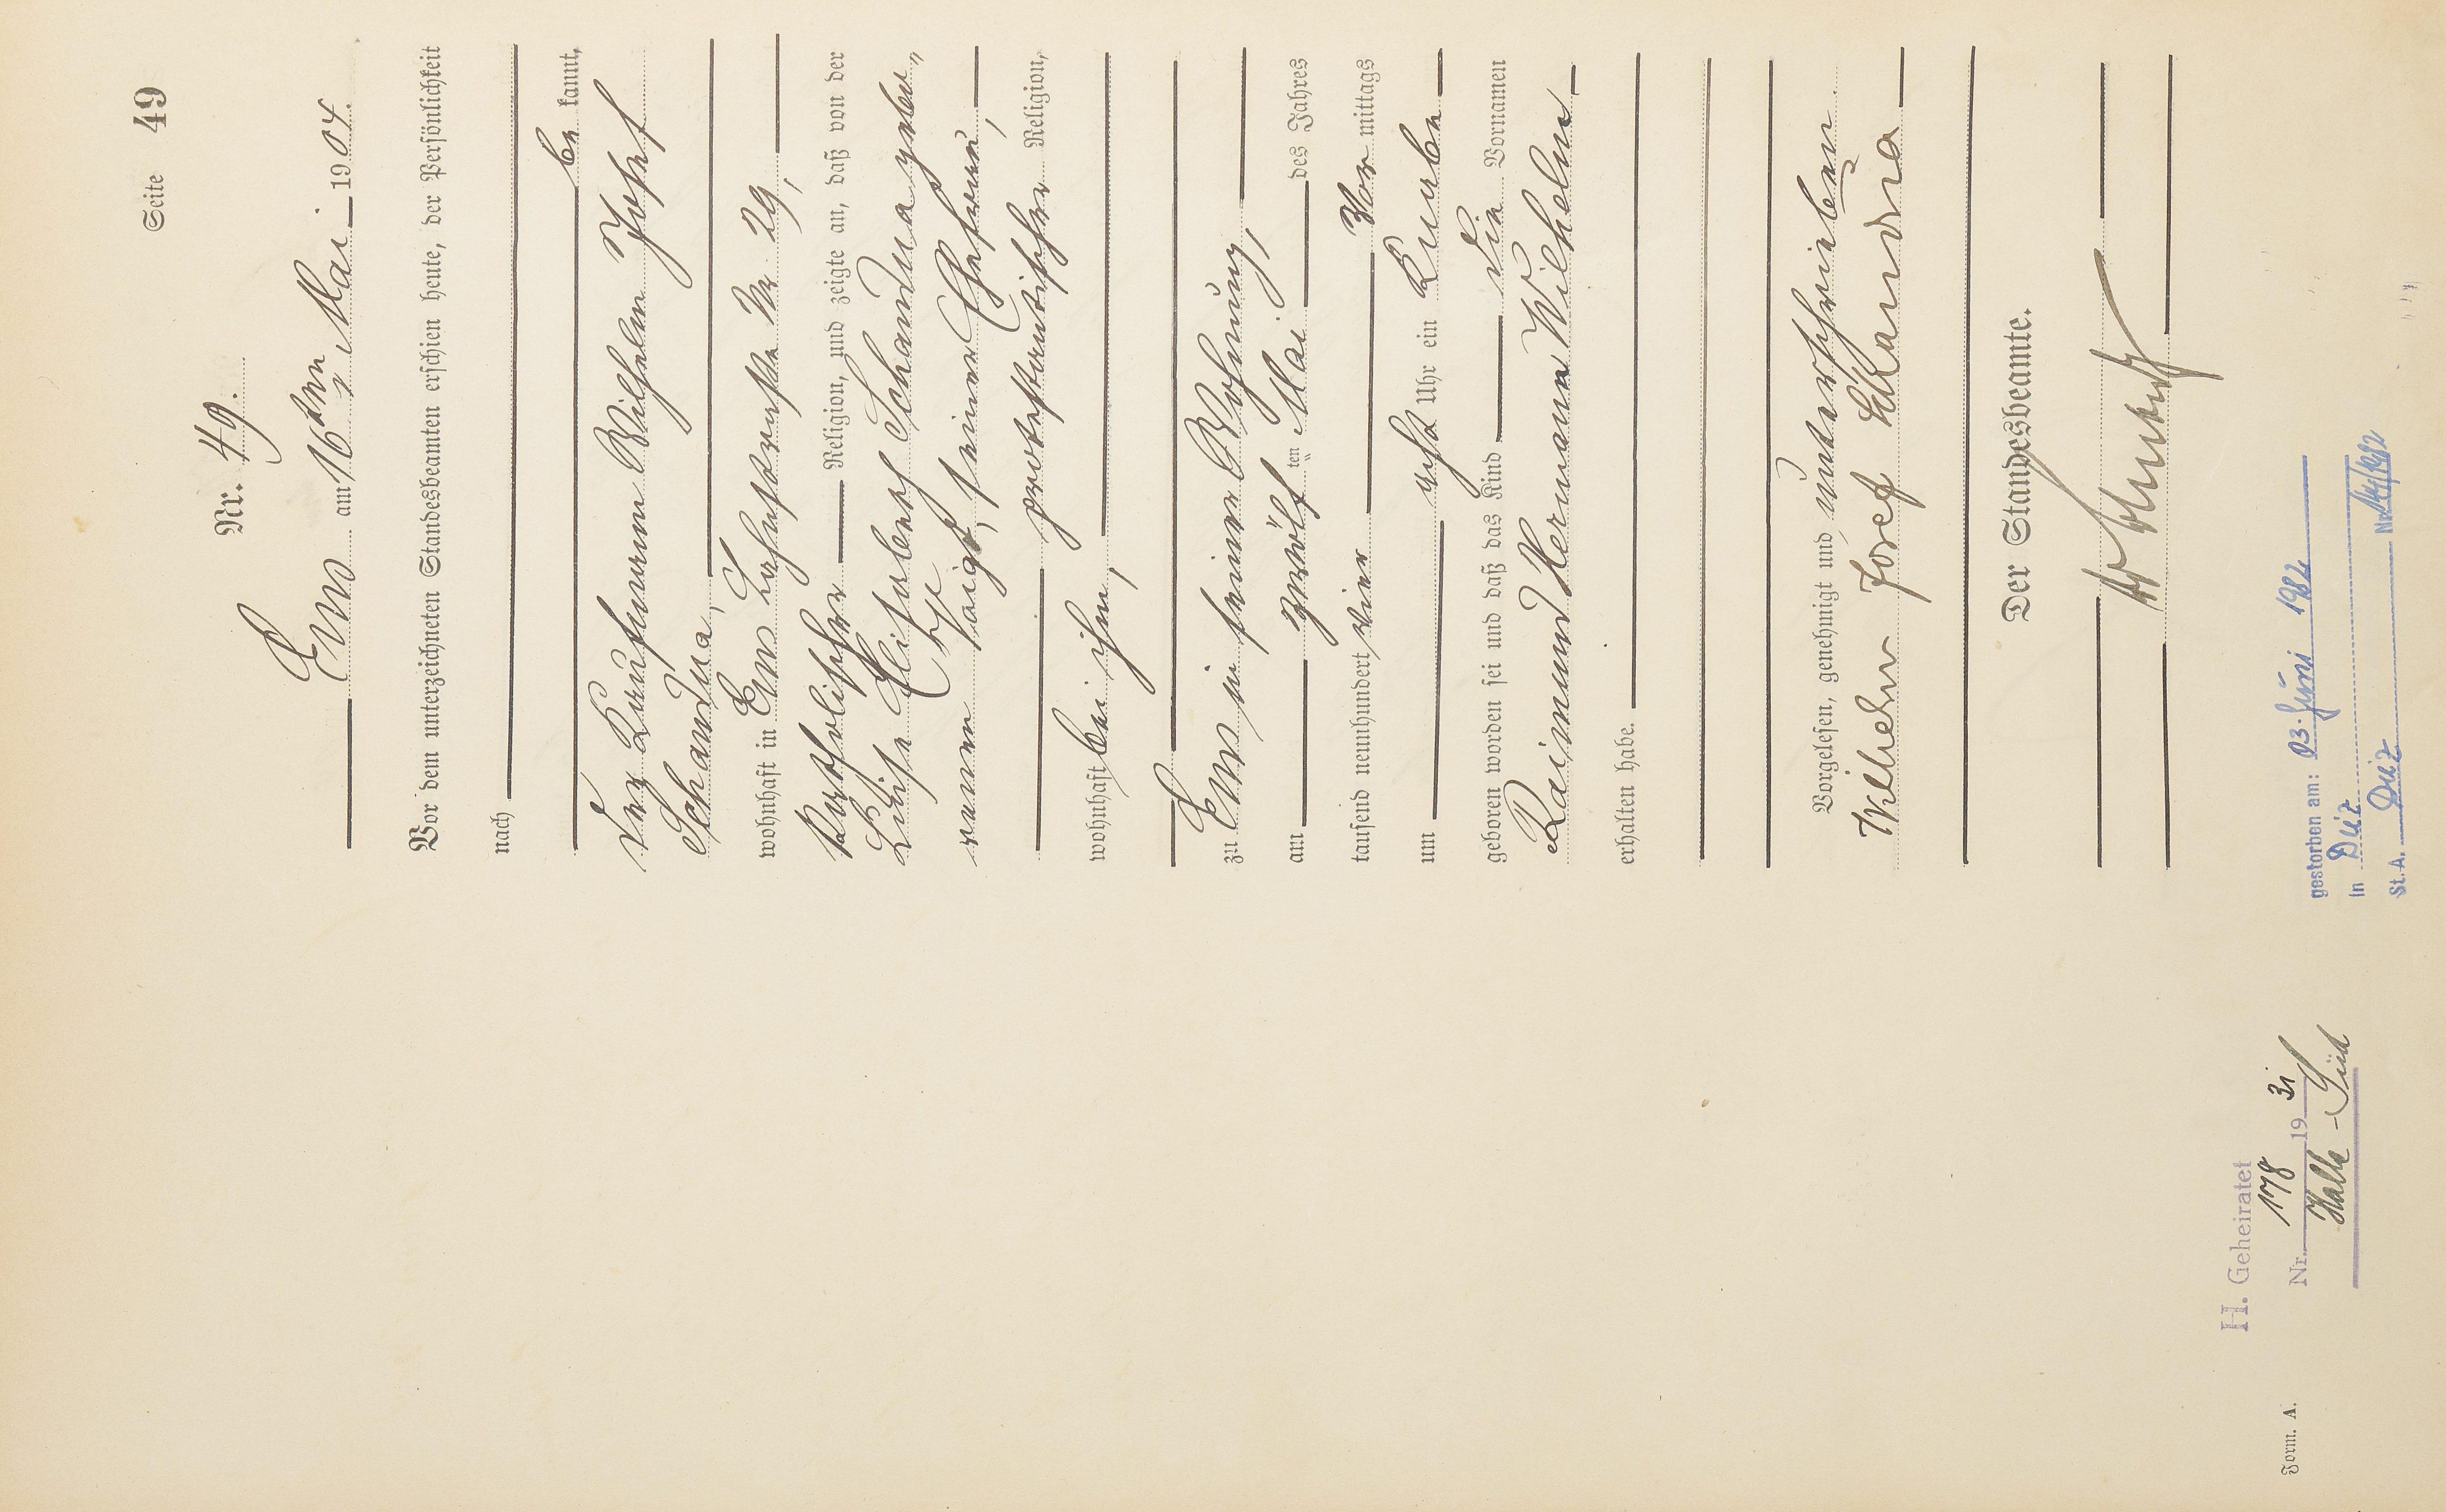 Seite 49
Nr. 49.
Ems am 16ten Mai 1904.
Vor dem unterzeichneten Standesbeamten erschien heute, der Persönlichkeit
nach
be kannt,
der Kaufmann Wilhelm Josef
Schandua,
wohnhaft in Ems Lahnstraße Nr 29,
katholischer Religion, und zeigte an, daß von der
Luise Elisabeth Schandua gebo-
renen Voigt, seiner Ehefrau,
protestantischer Religion,
wohnhaft bei ihm,
zu Ems in seiner Wohnung,
am zwölf ten Mai des Jahres
tausend neunhundert vier Vor mittags
um acht Uhr ein Knabe
geboren worden sei und daß das Kind die Vornamen
Raimund Hermann Wilhelm
erhalten habe.
Vorgelesen, genehmigt und unterschrieben
Wilhelm Josef Schandua
Der Standesbeamte.
H. Geheiratet
Nr. 178 1931
Halle-Süd
gestorben am: 03. Juni 1982
in Diez
St.A. Diez Nr.
Form. A.